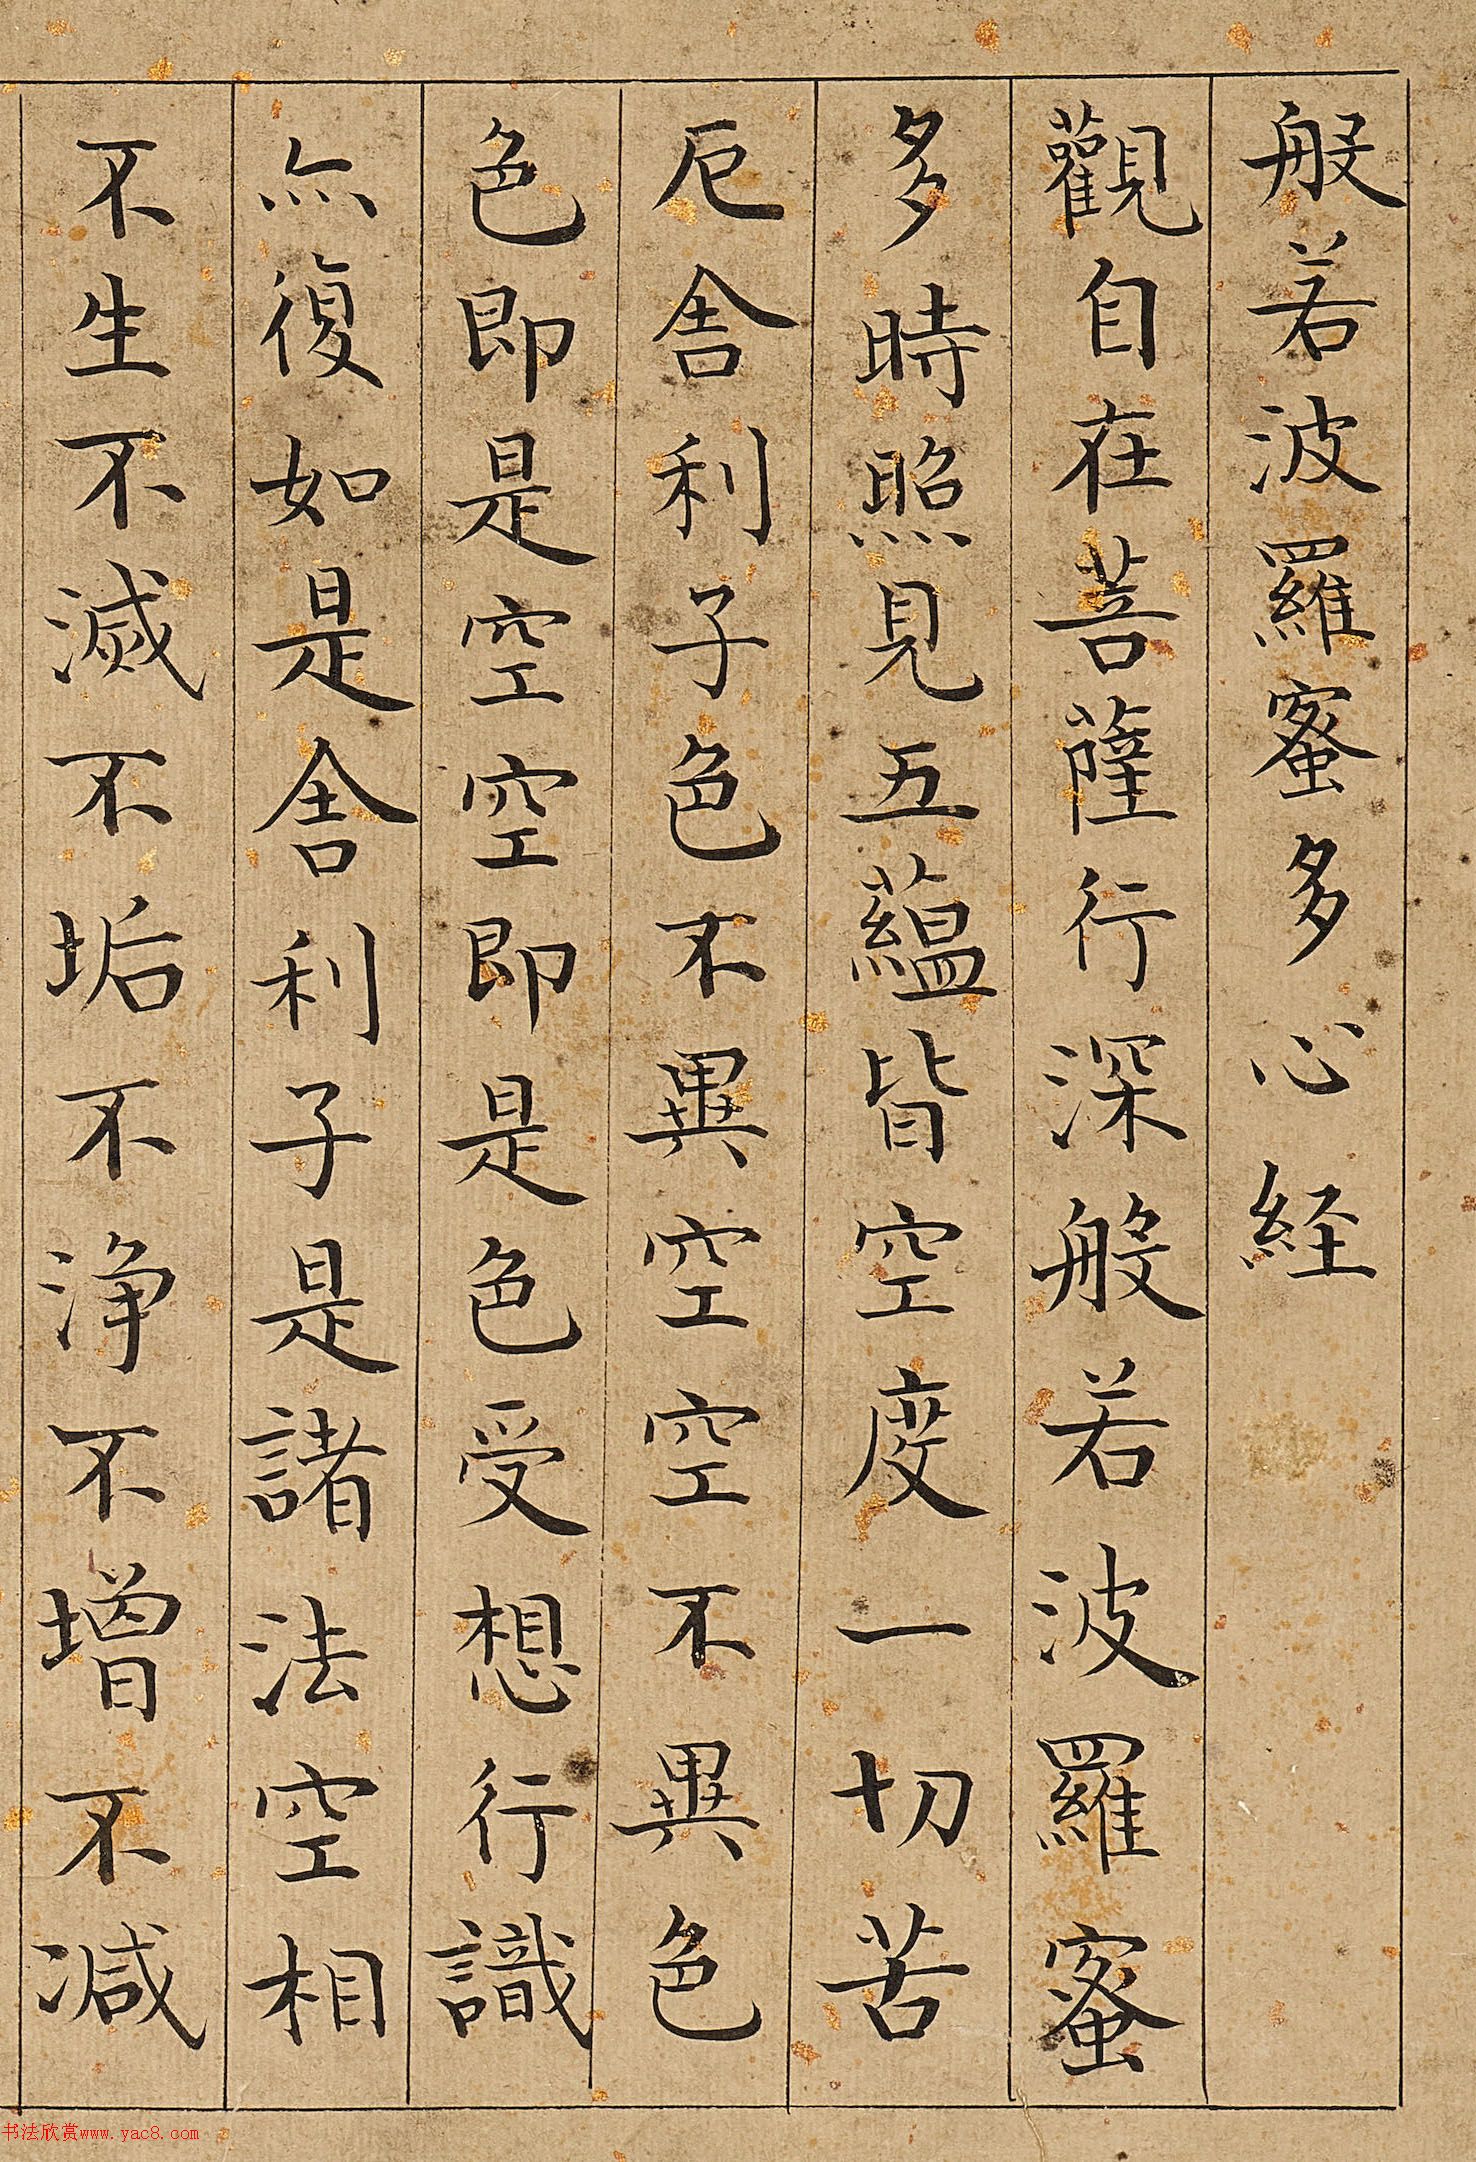 般若波羅蜜多心経
觀自在菩薩行深般若波羅蜜
多時照見五蘊皆空度一切苦
厄舍利子色不異空空不異色
色即是空空即是色受想行識
亦復如是舍利子是諸法空相
不生不滅不垢不淨不增不減
书法欣赏www.yac8.com